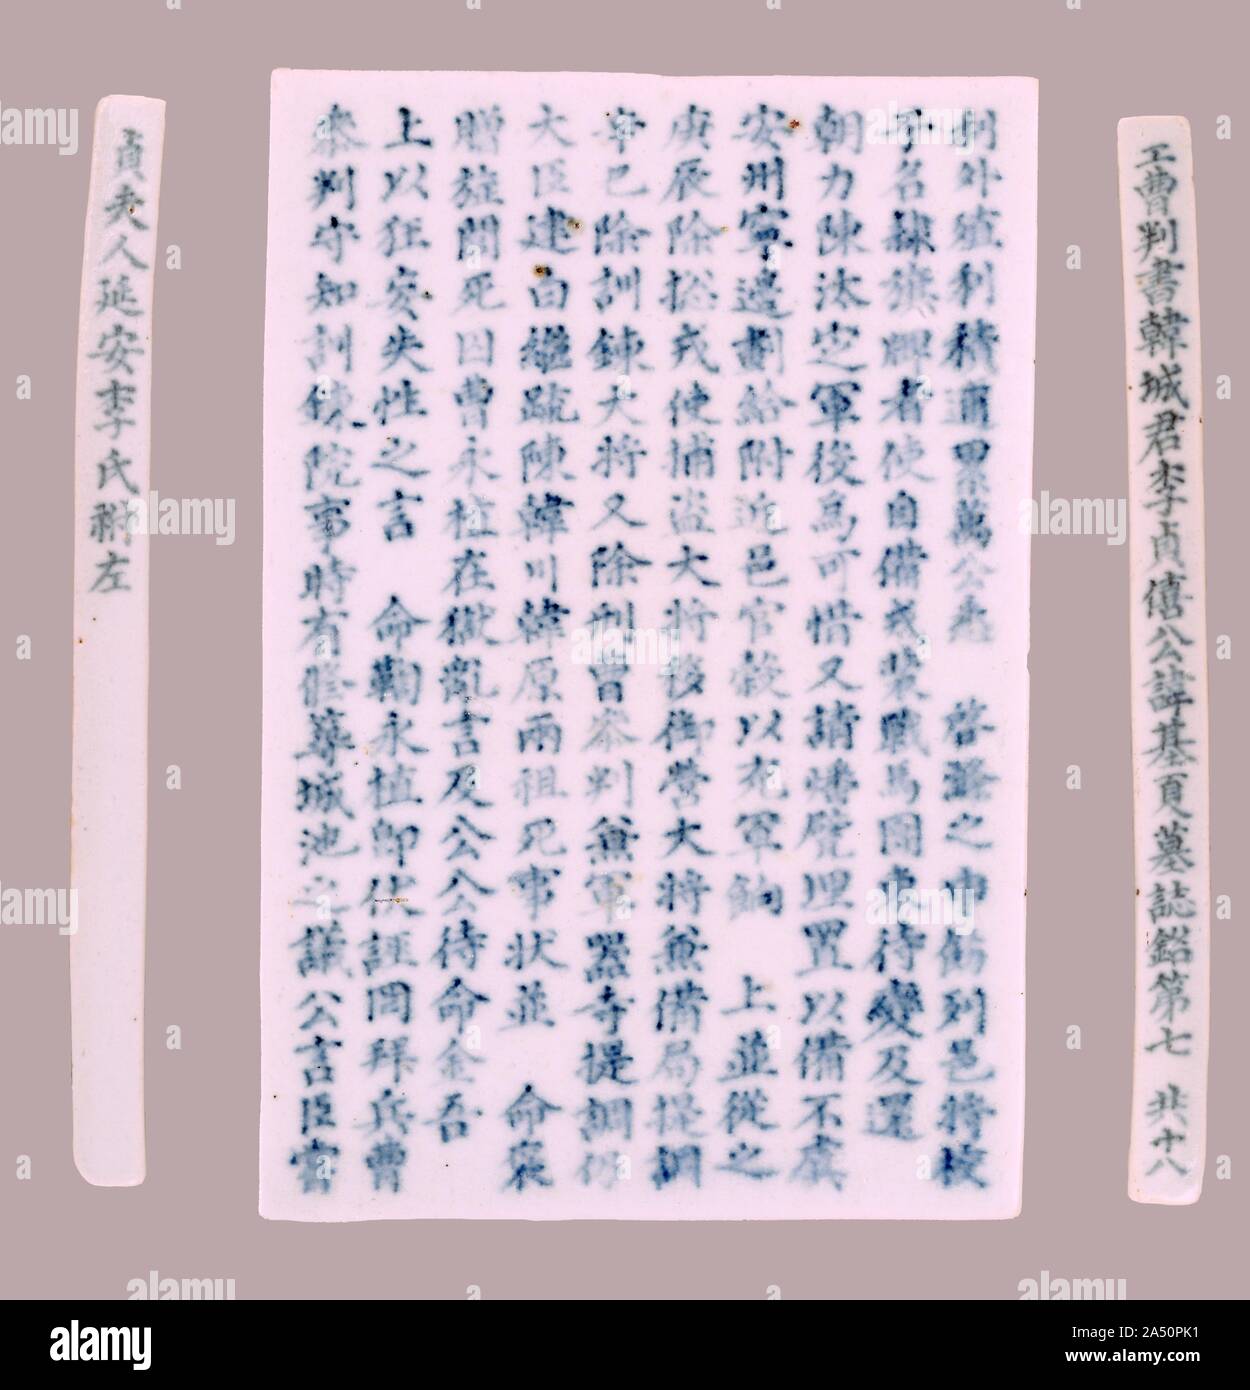 工曹判書韓城君李貞僖公諱基夏墓誌銘第七 共十八
制外殖利積逋累萬公悉 啓 之申飭列邑將校
子名隸旗牌者使自備戎裝戰馬團束待變及還
朝力陳汰定軍役為可惜又請燔甓埋置以備不虞
安州寧邊劃給附近邑官穀以充軍餉 上並從之
庚辰除摠戎使捕盜大將移御營大將兼備局提調
辛巳除訓鍊大將又除刑曹參判兼軍器寺提調仍
大臣建白繼疏陳韓川韓原兩祖死事狀並 命褒
贈旌閭死囚曹永植在獄亂言及公公待命金吾
上以狂妄失性之言 命鞫永植卽伏誣罔拜兵曹
參判守知訓鍊院事時有修築城池之議公言臣嘗
貞夫人延安李氏祔左
a
alamy
alamy
Image ID: 2A50PK1
www.alamy.com